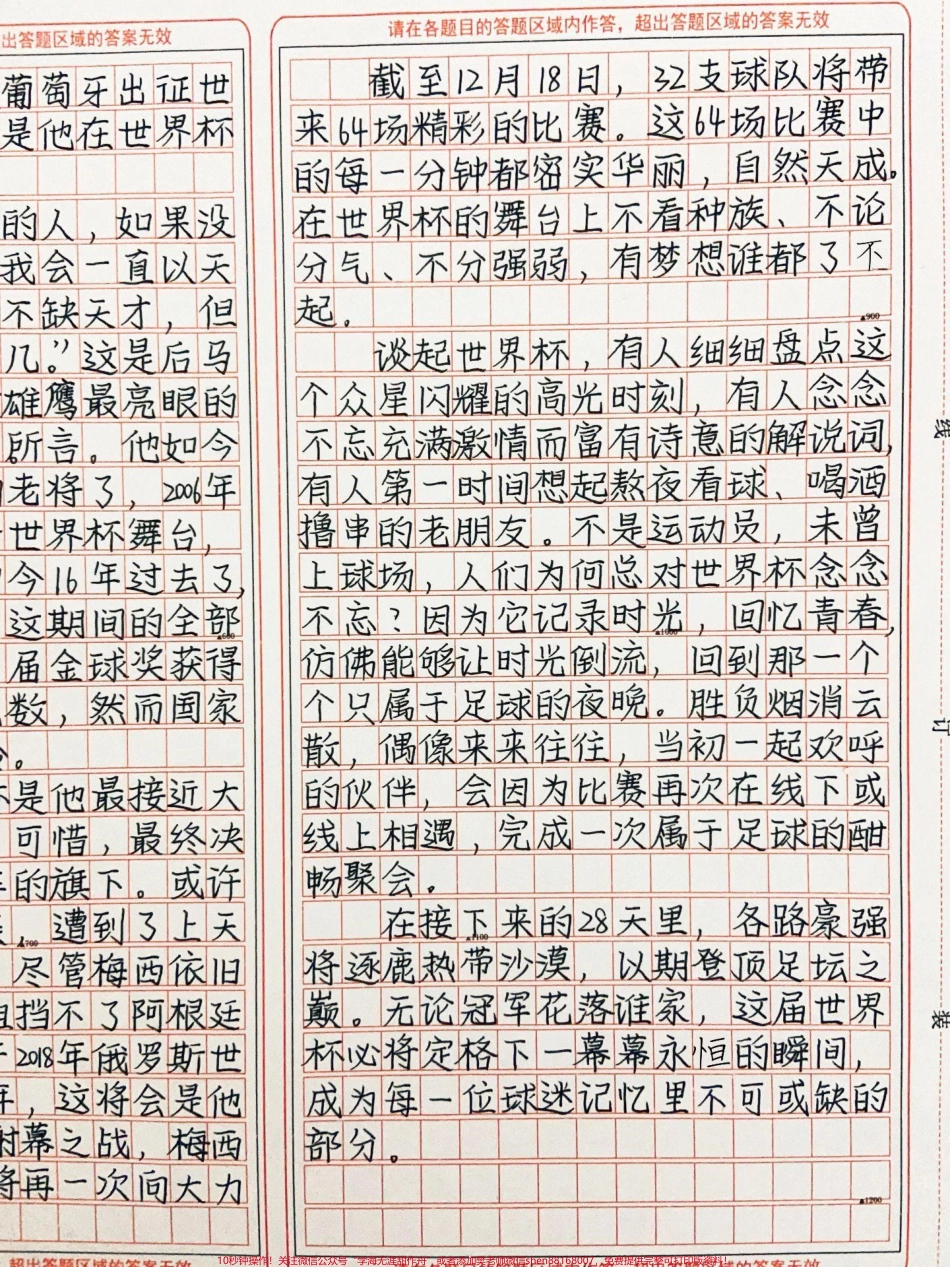 出答题区域的答案无效
葡萄牙出征世
是他在世界杯
的人，如果没
我会一直以天
不缺天才，但
几。”这是后马
雄鹰最亮眼的
所言。他如今
老将了，2006年
世界杯舞台，
今16年过去了，
这期间的全部
届金球奖获得
数，然而国家
。
是他最接近大
可惜，最终决
的旗下。或许
，遭到了上天
▲700
尽管梅西依旧
挡不了阿根廷
2018年俄罗斯世
，这将会是他
幕之战，梅西
将再一次向大力
超出答题区域的答案无效
请在各题目的答题区域内作答，超出答题区域的答案无效
截至12月18日，32支球队将带
来64场精彩的比赛。这64场比赛中
的每一分钟都密实华丽，自然天成。
在世界杯的舞台上不看种族、不论
分气、不分强弱，有梦想谁都了不
起。
▲900
谈起世界杯，有人细细盘点这
个众星闪耀的高光时刻，有人念念
不忘充满激情而富有诗意的解说词，
有人第一时间想起熬夜看球、喝酒
撸串的老朋友。不是运动员，未曾
上球场，人们为何总对世界杯念念
不忘？因为它记录时光，回忆青春，
▲1000
仿佛能够让时光倒流，回到那一个
个只属于足球的夜晚。胜负烟消云
散，偶像来来往往，当初一起欢呼
的伙伴，会因为比赛再次在线下或
线上相遇，完成一次属于足球的酣
畅聚会。
在接下来的28天里，各路豪强
▲1100
将逐鹿热带沙漠，以期登顶足坛之
巅。无论冠军花落谁家，这届世界
杯必将定格下一幕幕永恒的瞬间，
成为每一位球迷记忆里不可或缺的
部分。
▲1200
线
订
装